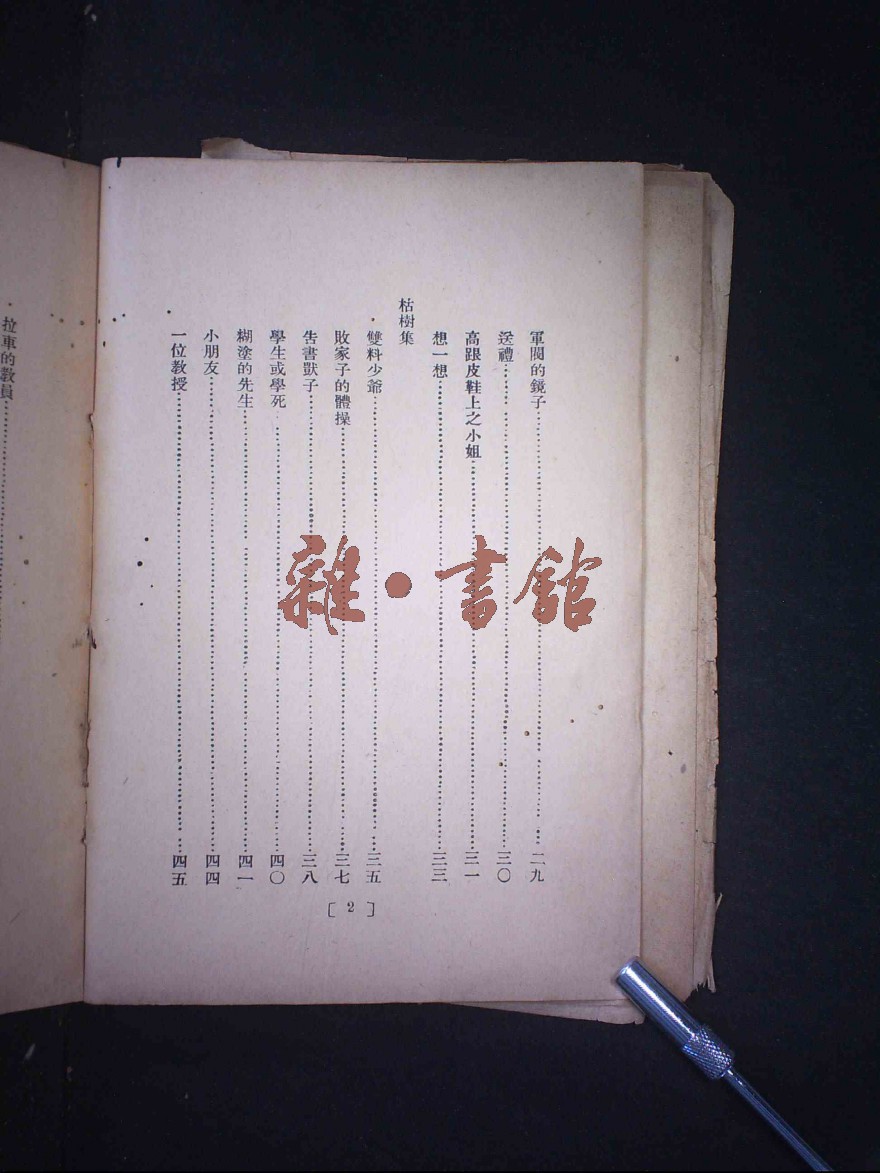 軍閥的鏡子…………二九
送禮…………三〇
高跟皮鞋上之小姐…………三一
想一想…………三三
枯樹集
雙料少爺…………三五
敗家子的體操…………三七
告書獃子…………三八
學生或學死…………四〇
糊塗的先生…………四一
小朋友…………四四
一位教授…………四五
[ 2 ]
拉車的教員…………
雜·書館